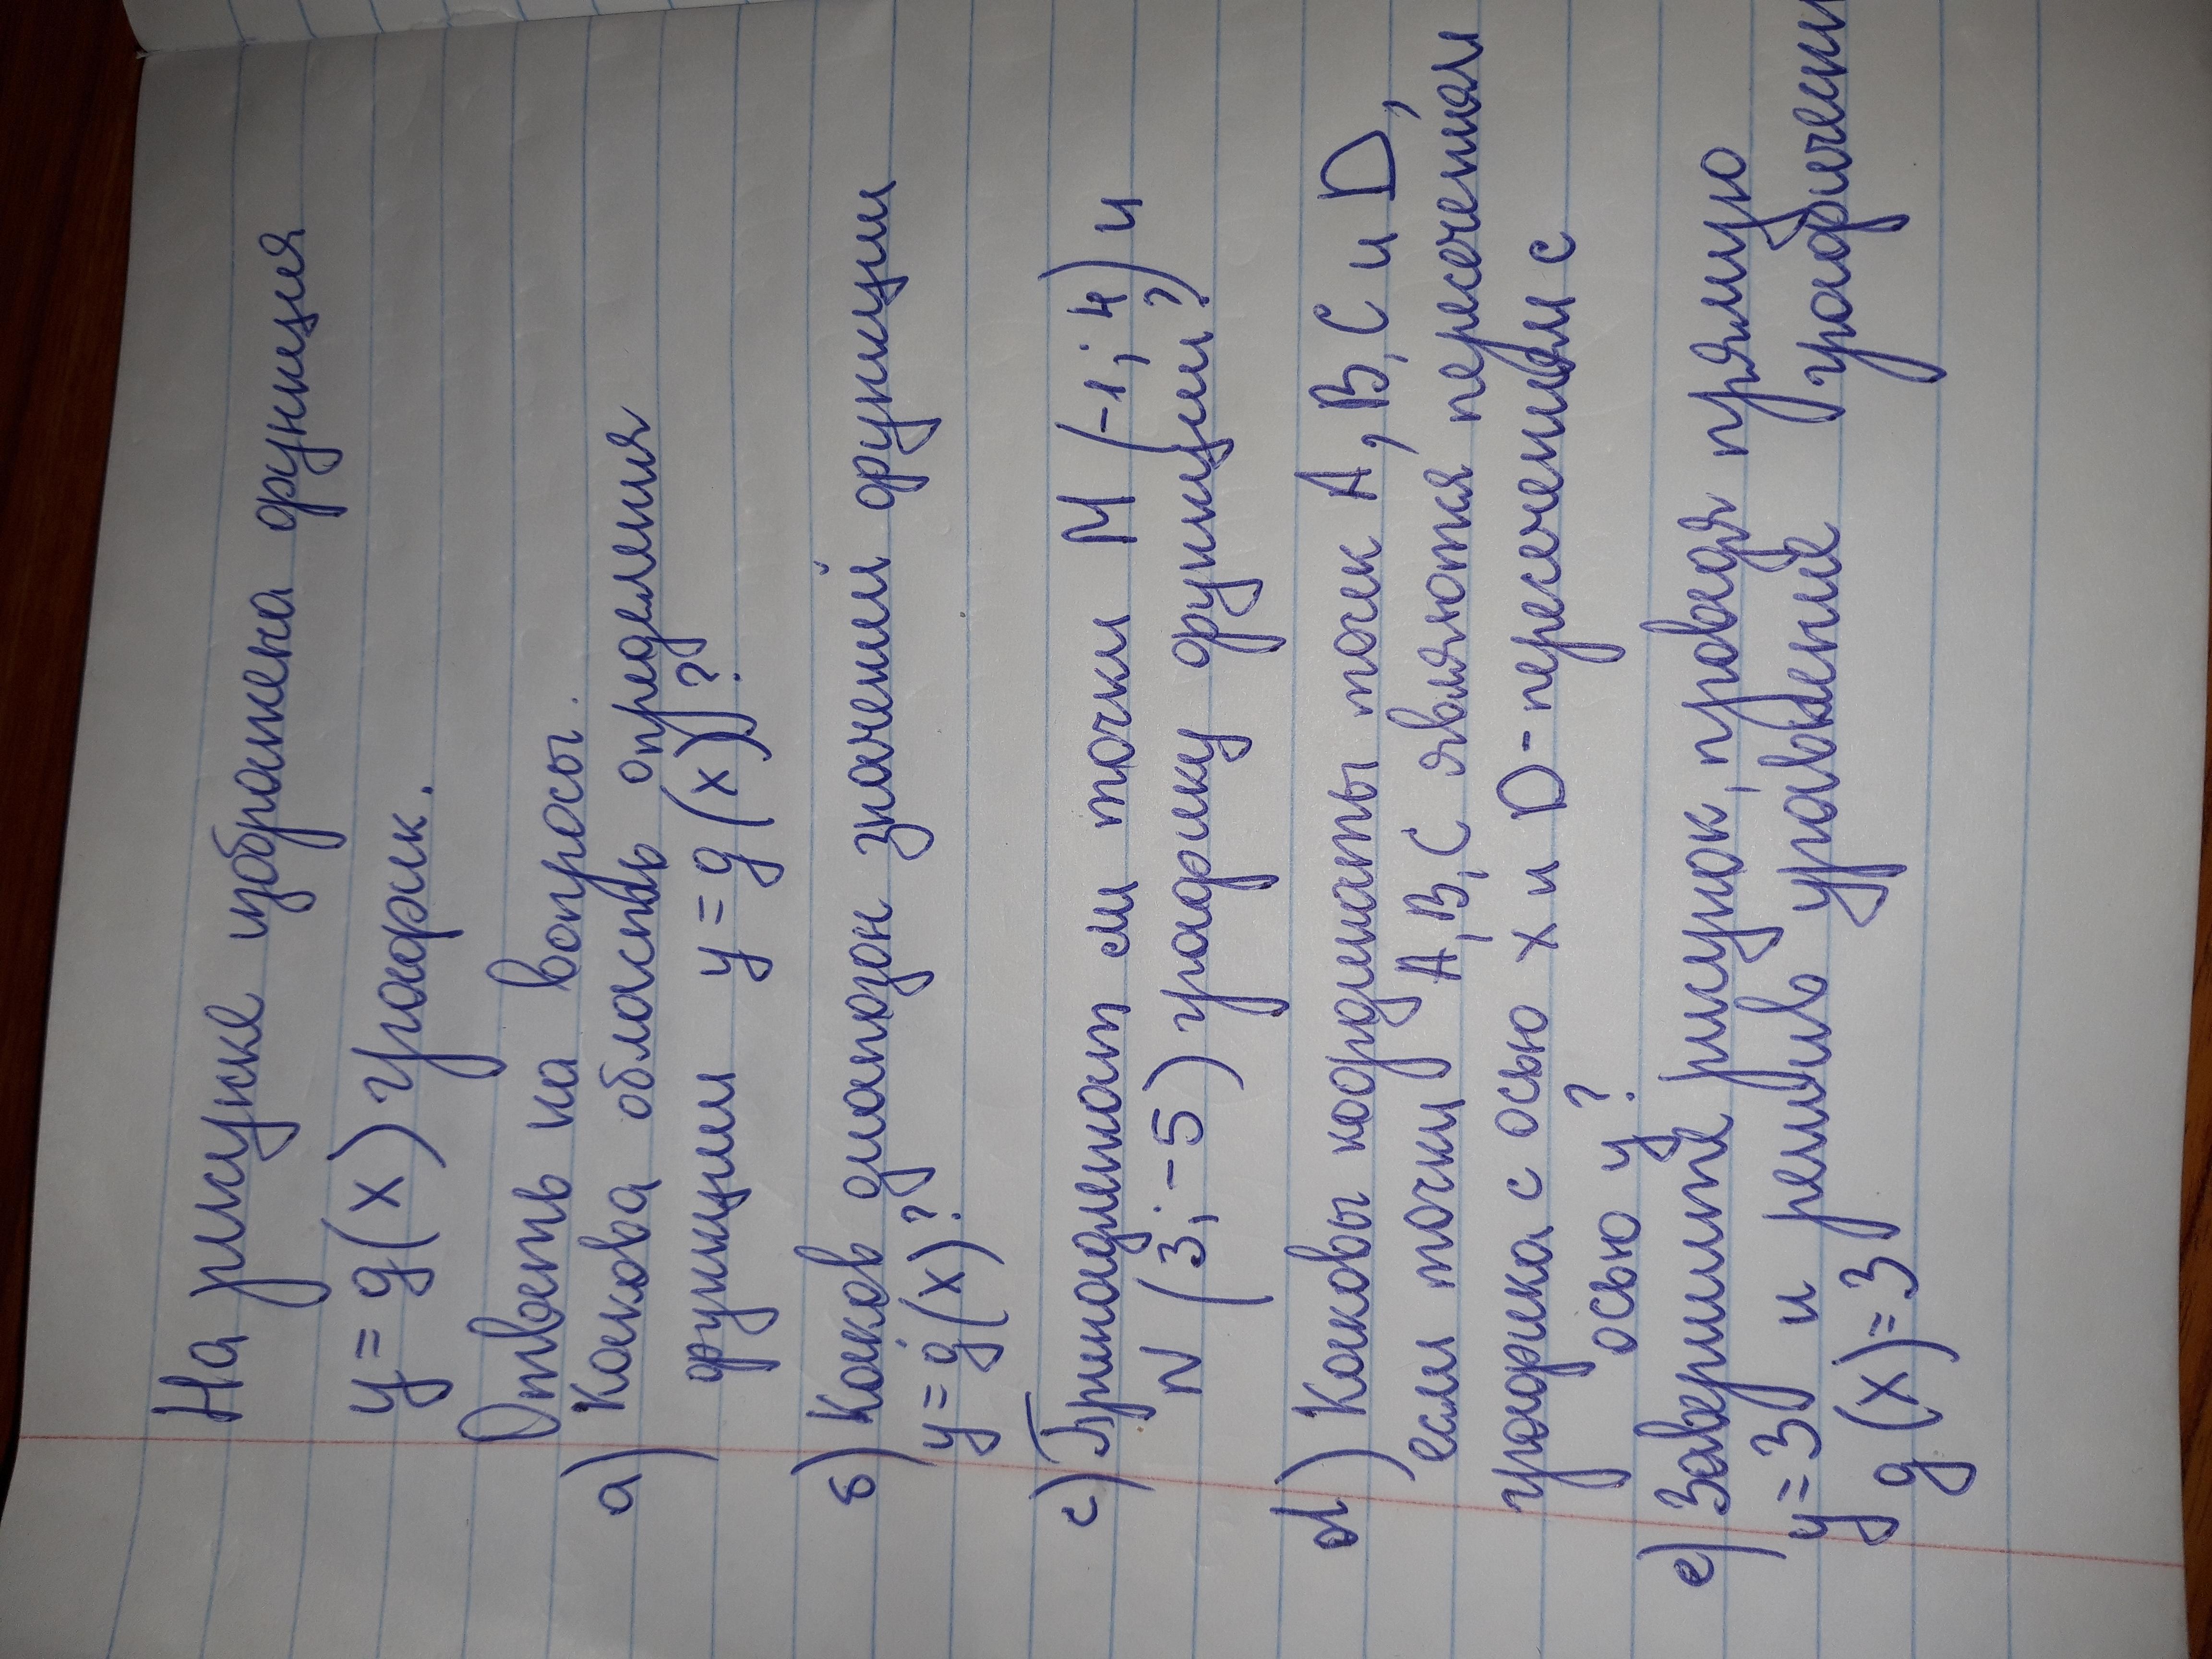 На рисунке изображена функция
y = g(x) график.
Ответь на вопросы.
а) Какова область определения
функции y = g(x)?
б) Каков диапазон значений функции
y = g(x)?
c) Принадлежат ли точки M (-1; 4) и
N (3; -5) графику функции?
d) Каковы координаты точек A, B, C и D,
если точки A, B, C являются пересечениям
графика с осью x и D - пересечением с
осью y?
e) Завершите рисунок, проведя прямую
y = 3 и решив уравнение графически
g(x) = 3